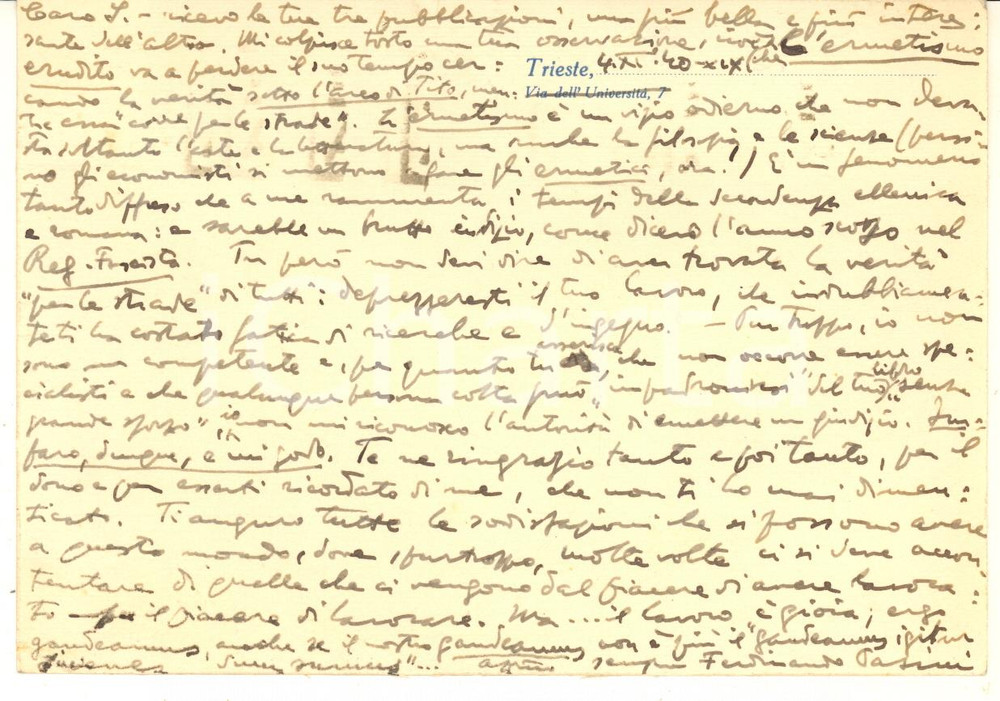 Caro S. - ricevo le tue tre pubblicazioni, una più bella e più interes=
sante dell'altra. Mi colpisce tosto una tua osservazione, cioè che l'ermetismo
erudito va a perdere il suo tempo cer=
Trieste, 4.XII.40-XIX
Via dell'Università, 7
cando la verità sotto l'arco di Tito, men=
tre essa "corre per le strade". L'ermetismo è un vizio odierno che non devasta
soltanto l'arte e la letteratura, ma anche la filosofia e le scienze (persi=
no gli economisti si mettono a fare gli ermetici, ora!) È un fenomeno
tanto diffuso che a me rammenta i tempi della decadenza ellenica
e romana: e sarebbe un brutto indizio, come dicevo l'anno scorso nel
Reg. Fascista. Tu però non devi dire di aver trovata la verità
"per le strade" di tutti: deprezzeresti il tuo lavoro, che indubbiamen=
te ti ha costato fatica di ricerche e d'ingegno. - Purtroppo, io non
sono un competente e, per quanto tu asserisca, che non occorre essere spe=
cialisti e che qualunque persona colta può "impadronirsi del tuo libro senza
grande sforzo" io non mi riconosco l'autorità di emettere un giudizio.
faro, dunque, e mi godo. Te ne ringrazio tanto e poi tanto, per il
dono e per esserti ricordato di me, che non ti ho mai dimen=
ticato. Ti auguro tutte le sodisfazioni che si possono avere
a questo mondo, dove, purtroppo, molte volte ci si deve accon=
tentare di quelle che ci vengono dal piacere di avere lavora=
to il piacere di lavorare. Ma... il lavoro è gioia; ergo
gaudeamus, anche se il nostro gaudeamus non è più il "gaudeamus igitur
juvenes dum sumus"... sempre Ferdinando Pasini